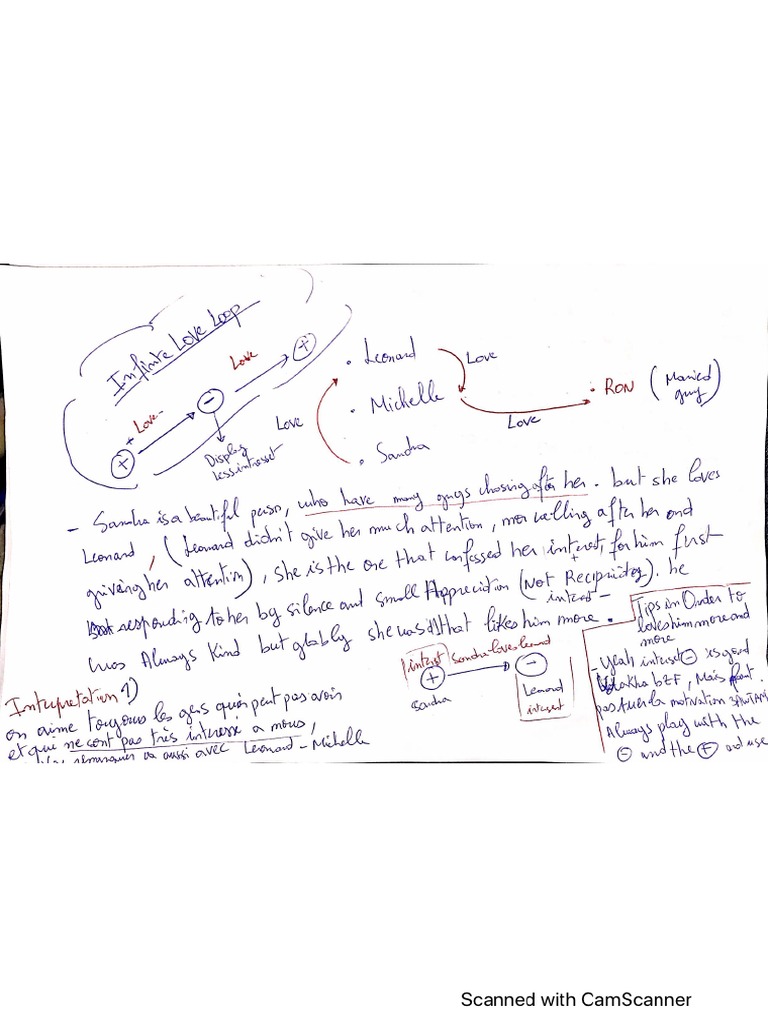 Infinite Love Loop
Love
+
-
+
Love
Display
less interest
Love
• Leonard
• Michelle
• Sandra
Love
Love
• RON (Married
guy)
- Sandra is a beautiful person, who have many guys chasing after her. but she loves
Leonard, (Leonard didn't give her much attention, nor calling after her and
giving her attention), she is the one that confessed her interest, for him first
+
responding to her by silence and small Appreciation (Not Reciprocity). he
interest -
was Always Kind but globally she was that likes him more.
Tips in Order to
loves him more and
more
- yeah interest - is good
bzf, Mais faut
pas tuer la motivation
Always play with the
- and the + and use
interest
Sandra loves Leonard
+
-
Sandra
Leonard
interest
Interpretation 1)
on aime toujours les gens qu'on peut pas avoir
et qui ne sont pas très intéressé a nous,
remarquer ça aussi avec Leonard - Michelle
Scanned with CamScanner